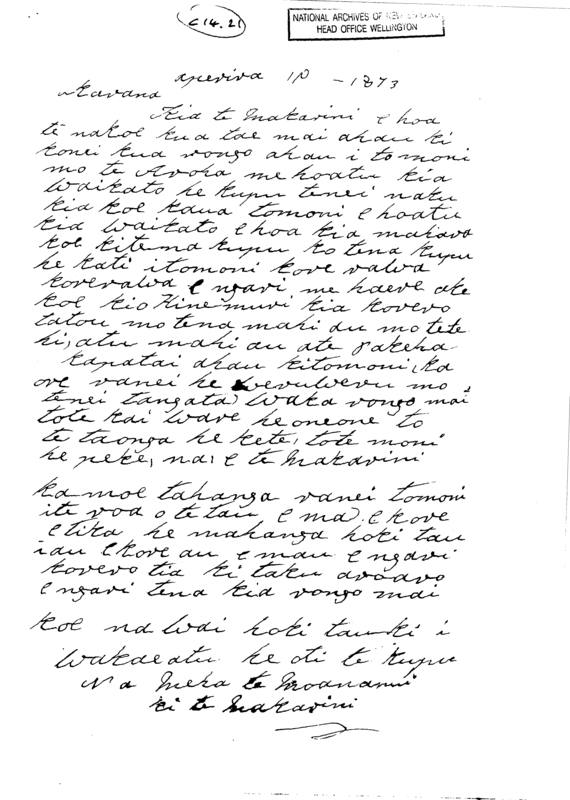 C14.21
NATIONAL ARCHIVES OF NEW ZEALAND
HEAD OFFICE WELLINGTON
Aperira 10 - 1873
Kia te Makarini e hoa
te nakoe kua tae mai ahau ki
konei kua rongo ahau i to moni
mo te Aroha me hoatu kia
Waikato he kupu tenei naku
kia koe kaua tomoni e hoatu
kia Waikato e hoa kia maharo
koe kitema kupu ko tena kupu
he kati itomoni kore
e ngari me haere ake
koe kio Hinemuri kia korero
tatou mo tena mahi au mo tete
hi, atu mahi au ate pakeha
kapatai ahau kitomoni, ka
ore ranei he weruweru mo
tenei tangata Waka rongo mai
tote kai Ware he oneone to
te taonga he kete, tote moni
he peke, nai e te Makarini
ka moe tahanga ranei tomoni
ite roa o te tau e ma e kore
e tika he mahanga hoki tau
iau e kore au e mau e ngari
korero tia ki taku aroaro
e ngari tena kia rongo mai
koe na Wai hoki taua ki i
Wakaeatu he oti te kupu
Na Meha te Moananui
ki te Makarini